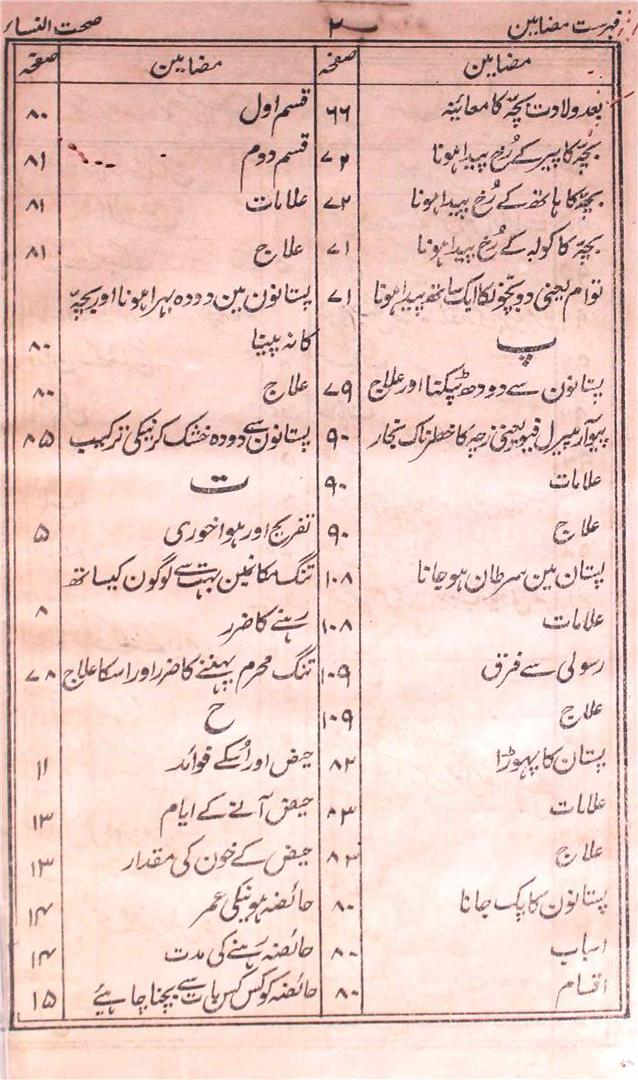 فہرست مضامین ۲ صحت النساء
مضامین صفحہ
بعد ولادت بچہّ کا معائینہ ۶۶
بچہّ کا پیر کے رُخ پیدا ہونا ۷۲
بچہّ کا ہاتھ کے رُخ پیدا ہونا ۷۲
بچہّ کا کولہ کے رُخ پیدا ہونا ۷۱
توام یعنی دو بچّونکا ایک ساتھ پیدا ہونا ۷۱
پ
پستانون سے دودھ ٹپکنا اور علاج ۷۹
پیوآرمپیرل فیور یعنی زچہ کا خطرناک بخار ۹۰
علامات ۹۰
علاج ۹۰
پستان مین سرطان ہوجانا ۱۰۸
علامات ۱۰۸
رسولی سے فرق ۱۰۹
علاج ۱۰۹
پستان کا پہوڑا ۸۲
علامات ۸۳
علاج ۸۳
پستانون کا پک جانا ۸۰
اسباب ۸۰
اقسام ۸۰
مضامین صفحہ
قسم اول ۸۰
قسم دوم ۸۱
علامات ۸۱
علاج ۸۱
پستانون مین دودہ بہرا ہونا اور بچہّ
کا نہ پینا ۸۰
علاج ۸۰
پستانون سے دودہ خشک کرنیکی ترکیب ۸۵
ت
تفریح اور ہوا خوری ۵
تنگ مکانمین بہت سے لوگون کیساتھ
رہنے کا ضرر ۸
تنگ محرم پہننے کا ضرر اور اسکا علاج ۷۸
ح
حیض اور اُسکے فوائد ۱۱
حیض آنے کے ایام ۱۳
حیض کے خون کی مقدار ۱۳
حائضہ ہونیکی عمر ۱۴
حائضہ رہنے کی مدت ۱۴
حائضہ کو کس کس بات سے بچنا چاہیٔے ۱۵